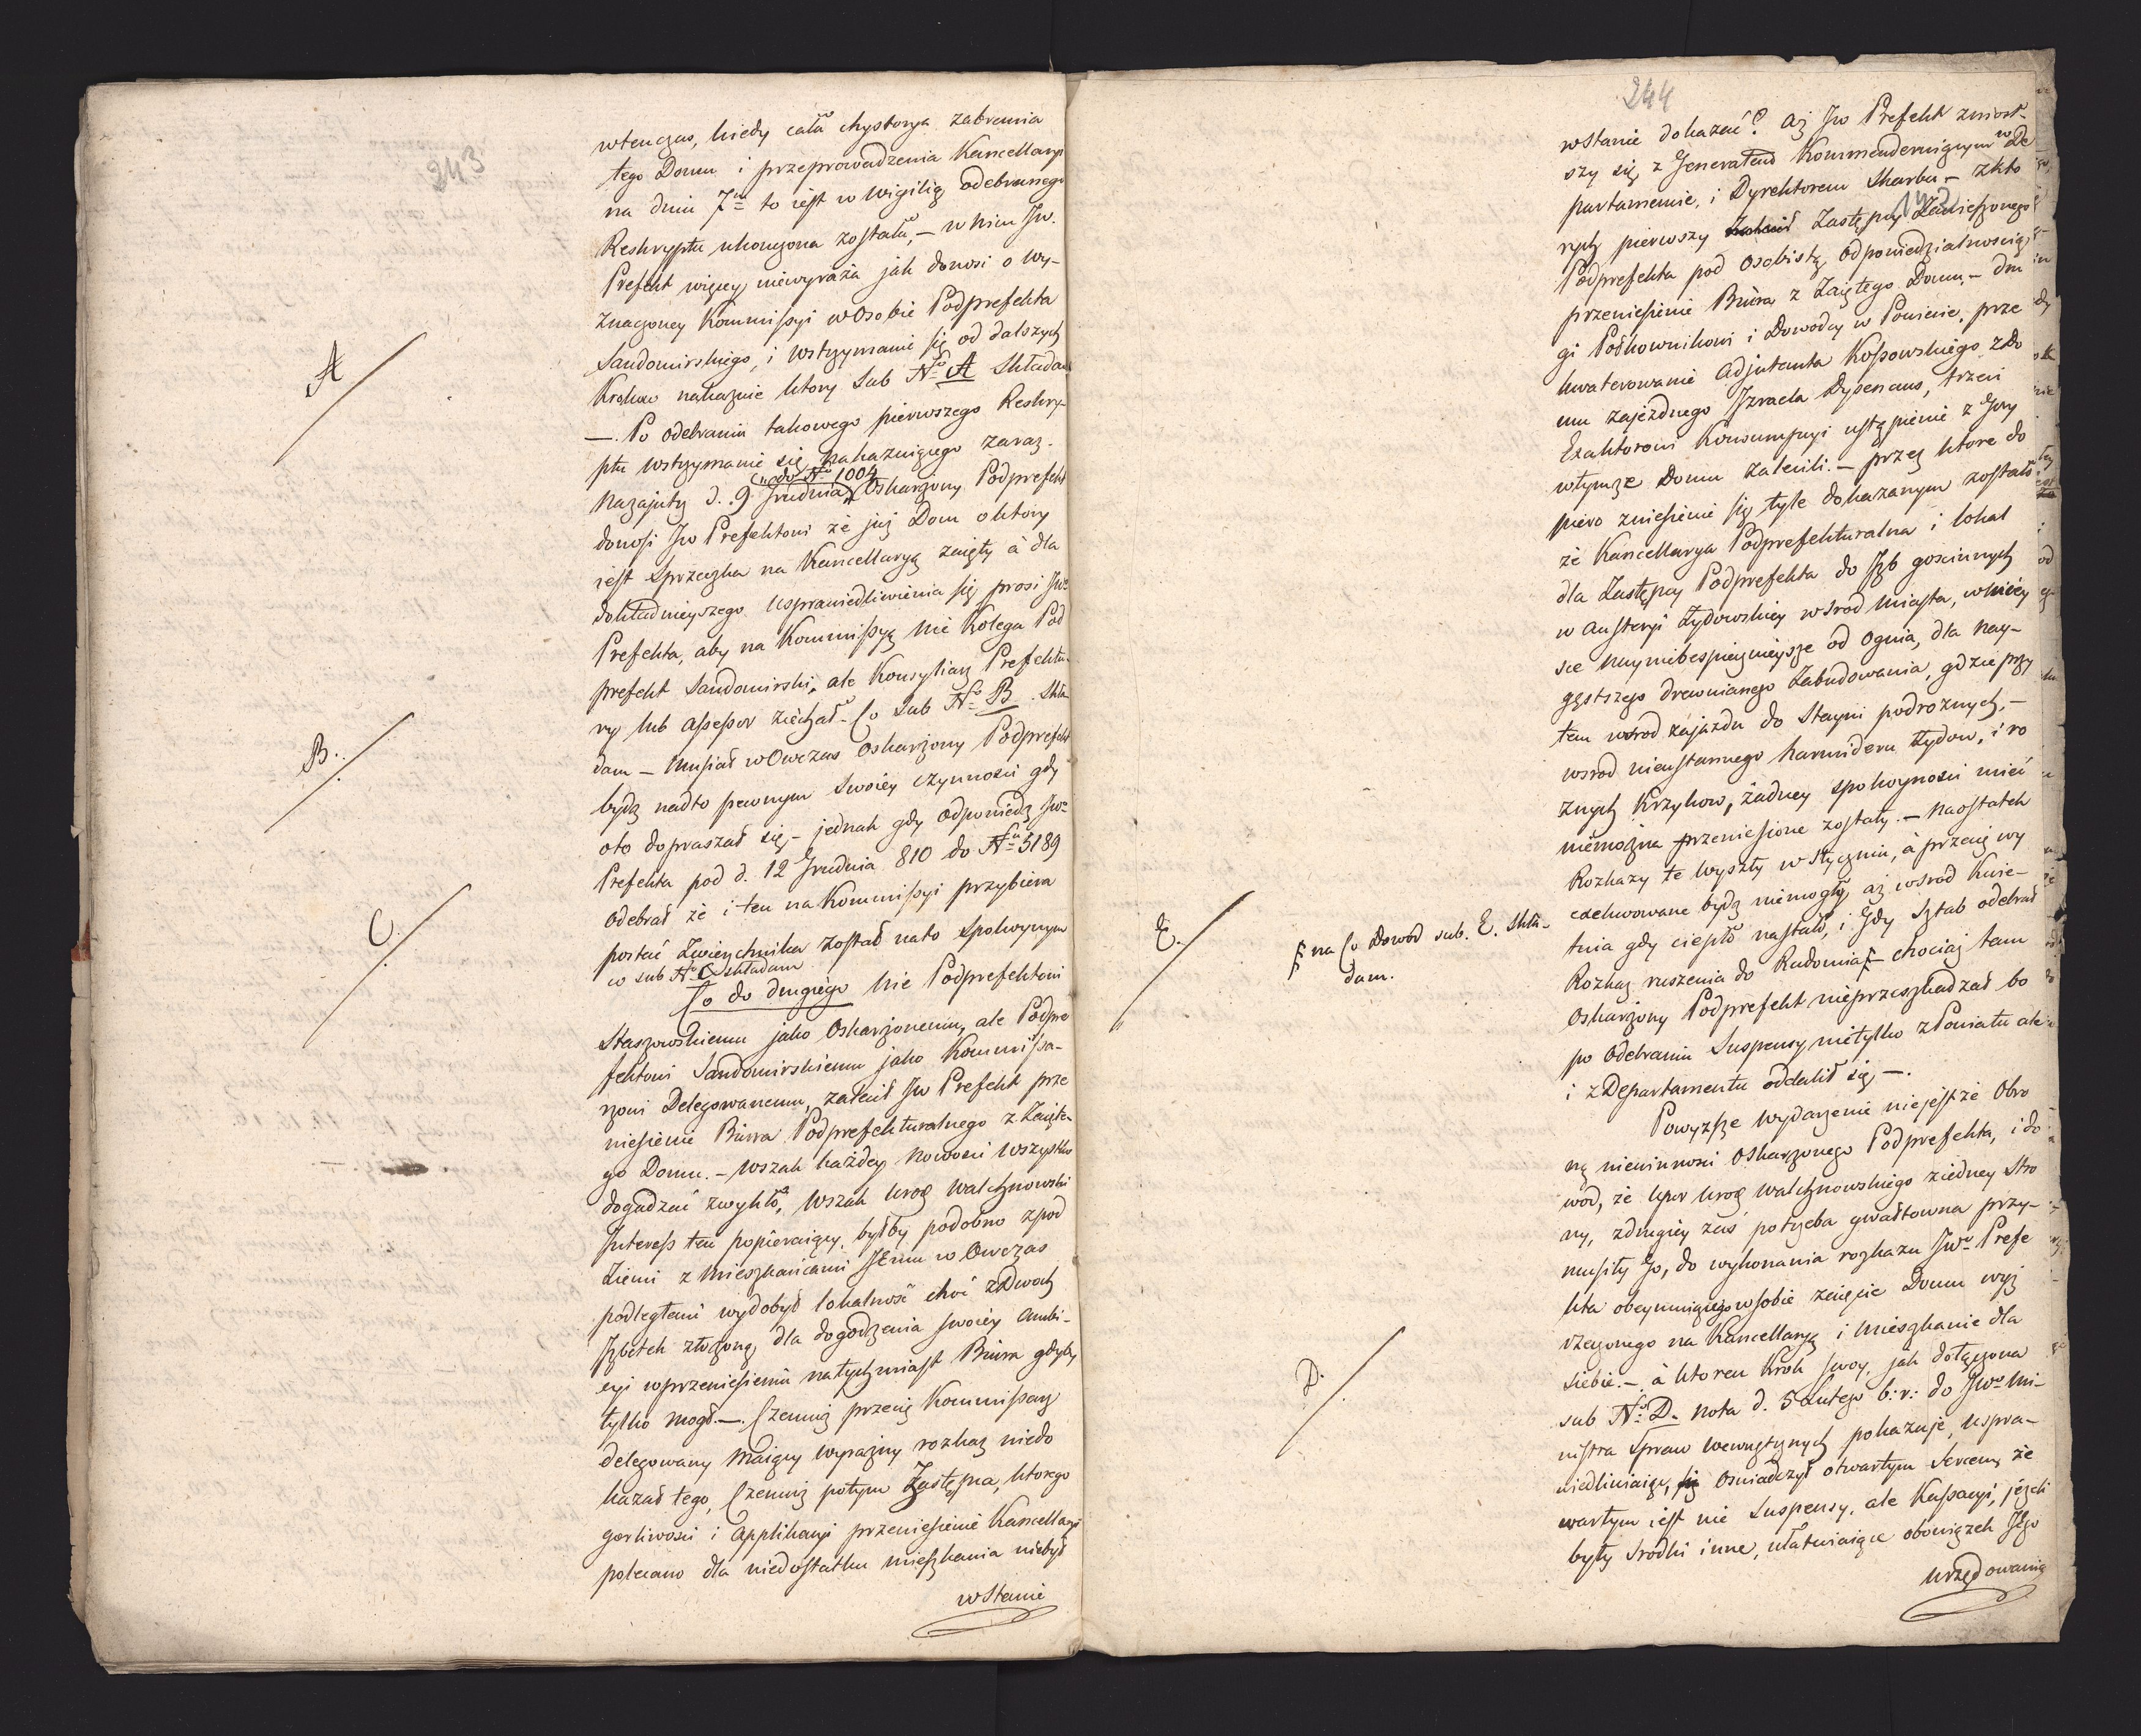 243
wtenczas, kiedy cała chystorya zabrania
tego Domu i przeprowadzenia Kancellaryi
na dniu 7m to iest w wigilią odebranego
Reskryptu ukończona została, – w nim Jw.
Prefekt więcey niewyraża jak donosi o wy-
znaczoney Kommissyi w Osobie Podprefekta
Sandomirskiego, i wstrzymanie się od dalszych
Krokow nakaznie ktory sub No A składam
A
–. Po odebraniu takowego pierwszego Reskry-
ptu wstrzymanie się nakazuiącego zaraz.
nazajutrz d. 9 Grudnia do No 1004 Oskarżony Podprefekt
donosi Jw Prefektowi że już Dom o ktory
iest sprzeczka na Kancellaryą zaięty à dla
dokładnieyszego usprawiedliwienia się prosi Jwo
Prefekta, aby na Kommissyą nie Kolega Pod
prefekt Sandomirski, ale Konsyliarz Prefektu-
ry lub Assessor ziechał. Co sub No B. Skła
B.
dam – Musiał w Owczas Oskarżony Podprefekt
bydz nadto pewnym swoiey czynnosci gdy
oto dopraszał się – jednak gdy odpowiedz Jwo
Prefekta pod d. 12 Grudnia 810 do No 5189
odebrał że i ten na Kommissyi przybiera
C.
postać Zwierzchnika został nato spokoynym
co sub No C składam
Co do drugiego nie Podprefektowi
Staszowskiemu jako Oskarżonemu, ale Podpre
fektowi Sandomirskiemu jako Kommissa-
rzowi Delegowanemu, zalecił Jw Prefekt prze
niesienie Biura Podprefekturalnego z Zaięte-
go Domu. – wszak każdey Nowosci wszystko
dogadzać zwykło, wszak Uroz Walchnowski
Interess ten popieraiący, byłby podobno zpod
Ziemi z Mieszkańcami Jemu w Owczas
podległemi wydobył lokalność choć z Dwoch
Izbetek złożoną dla dogodzenia swoiey Ambi-
cyi w przeniesieniu natychmiast Biura gdyby
tylko mogł. –. Czemuż przecię Kommissarz
delegowany Maiący wyraźny rozkaz niedo
kazał tego, Czemuż potym Zastępca, ktorego
gorliwosci i Applikacyi przeniesienie Kancellaryi
polecano dla niedostatku mieszkania niebył
wstanie
244
wstanie dokazać? Aż Jw Prefekt zniosł-
szy się z Generałem Kommenderuiącym w De
partamencie, i Dyrektorem Skarbu – z kto
rych pierwszy Zastępcy Zawieszonego
Podprefekta pod osobistą odpowiedzialnoscią
przeniesienie Biura z Zaiętego Domu, – dru
gi Półkownikowi i Dowodcy w Powiecie, prze
kwaterowanie Adjutanta Kossowskiego z Do
mu zajezdnego Izraela Dysenaus, trzeci
Exaktorowi Konsumpcyi ustąpienie z Gory
w tymze Domu zalecili. – przez ktore do
piero zniesienie się tyle dokazanym zostało
że Kancellarya Podprefekturalna i lokal
dla Zastępcy Podprefekta do Izb goscinnych
w Austeryi Żydowskiey wsrod Miasta, w miey
sce Nayniebespiecznieysze od Ognia, dla nay-
gęstszego drewnianego Zabudowania, gdzie przy
tem wsrod zajazdu do Stayni podrożnych, –
wsrod nieustannego harmideru Żydow, i ro
znych Krzykow, żadney spokoynosci mieć
niemożna przeniesione zostały. – Naostatek
Rozkazy te wyszły w Styczniu, à przecię wy
exekwowane bydz niemogły, aż wsrod Kwie-
tnia gdy ciepło nastało, i Gdy Sztab odebrał
Rozkaz ruszenia do Radomia – chociaż tam
E.
na Co Dowod sub. E. Skła-
dam.
Oskarżony Podprefekt nieprzeszkadzał bo
po Odebraniu Suspensy nietylko z Powiatu ale
i z Departamentu oddalił się –.
Powyzsze wydarzenie niejestże Obro
ną niewinnosci Oskarżonego Podprefekta, i do
wod, że Upor Uroz Walchnowskiego ziedney stro
ny, zdrugiey zas potrzeba gwałtowna przy-
musiły Go, do wykonania rozkazu Jwo Prefe
kta obeymuiącego wsobie zaięcie Domu wyż
rzeczonego na Kancellaryą i Mieszkanie dla
siebie. – à ktoren Krok swoy, jak dołączona
D.
sub No D. Nota d. 5 Lutego b: r: do Jwo Mi-
nistra Spraw Wewnętrznych pokazuje, uspra-
wiedliwiaiąc, Oswiadczył otwartym Sercem, że
wartym iest nie Suspensy, ale Kassacyi, jeżeli
były srodki inne, ułatwiaiące obowiązek Jego
Urzędowania